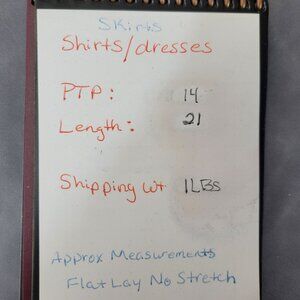 Skirts
Shirts/dresses
PTP: 14
Length: 21
Shipping wt 1LBS
Approx Measurements
Flat Lay No Stretch